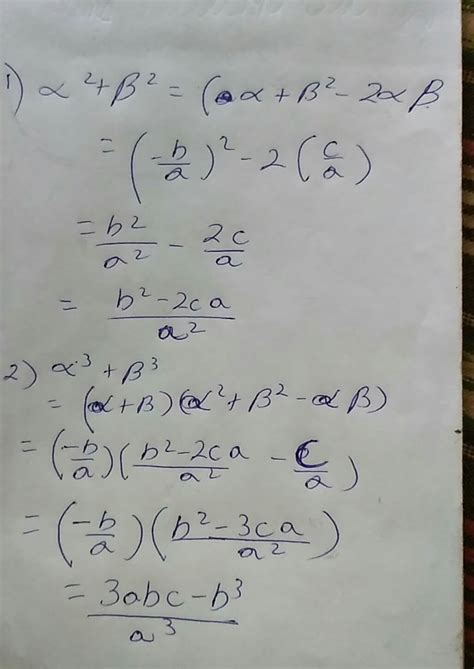 1) α² + β² = (α + β² - 2αβ
= (-b/a)² - 2(c/a)
= b²/a² - 2c/a
= b² - 2ca / a²
2) α³ + β³
= (α + β)(α² + β² - αβ)
= (-b/a)(b² - 2ca / a² - c/a)
= (-b/a)(b² - 3ca / a²)
= 3abc - b³ / a³